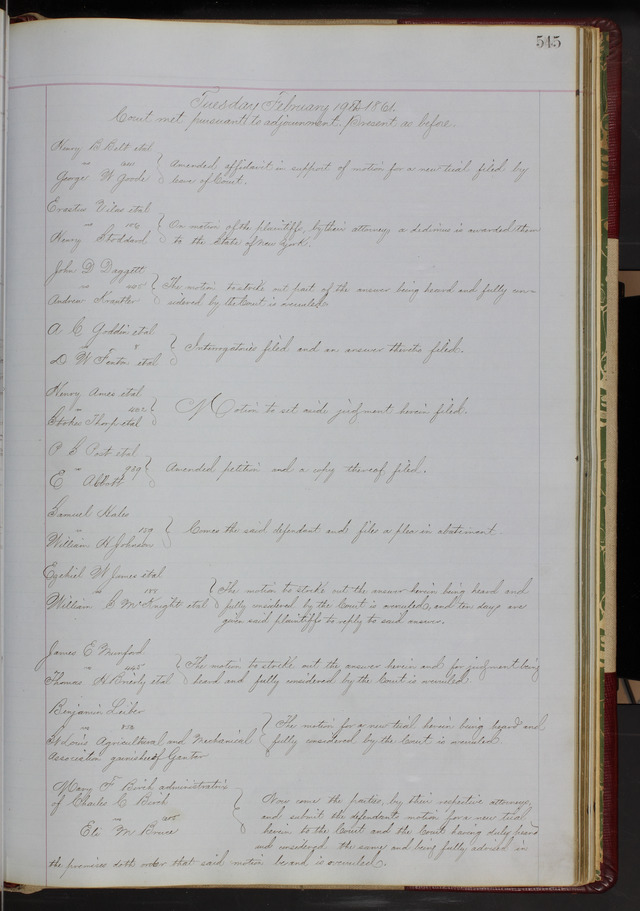 545
Tuesday February 19th 1861.
Court met pursuant to adjournment. Present as before.
Henry B Belt et al
vs
George W Goode
Amended affidavit in support of motion for a new trial filed by
leave of Court.
Erastus Vilas et al
vs
Henry Stoddard
On motion of the plaintiffs, by their attorney a dedimus is awarded them
to the State of New York.
John D Daggett
vs
Andrew Krantler
The motion to strike out part of the answer being heard and fully con-
sidered by the Court is overruled.
A C Goddin et al
vs 8
D W Fenton et al
Interrogatories filed and an answer thereto filed.
Henry Ames et al
vs 402
Stokes Thorp et al
Motion to set aside judgment herein filed.
P S Post et al
vs 929
E Abbott
Amended petition and a copy thereof filed.
Samuel Hales
vs 129
William H Johnson
Comes the said defendant and files a plea in abatement.
Ezekiel W James et al
vs
William G McKnight et al
The motion to strike out the answer herein being heard and
fully considered by the Court is overruled, and ten days are
given said plaintiffs to reply to said answer.
James E Munford
vs 445
Thomas H Brierly et al
The motion to strike out the answer herein and for judgment being
heard and fully considered by the Court is overruled.
Benjamin Leiber
vs
St Louis Agricultural and Mechanical
Association garnishee of Ganter
The motion for a new trial herein being heard and
fully considered by the Court is overruled
Mary F Birch administratrix
of Charles C Birch
vs
Eli M Bruce
Now come the parties, by their respective attorneys,
and submit the defendants motion for a new trial
herein to the Court and the Court having duly heard
and considered the same and being fully advised in
the premises doth order that said motion be and is overruled.